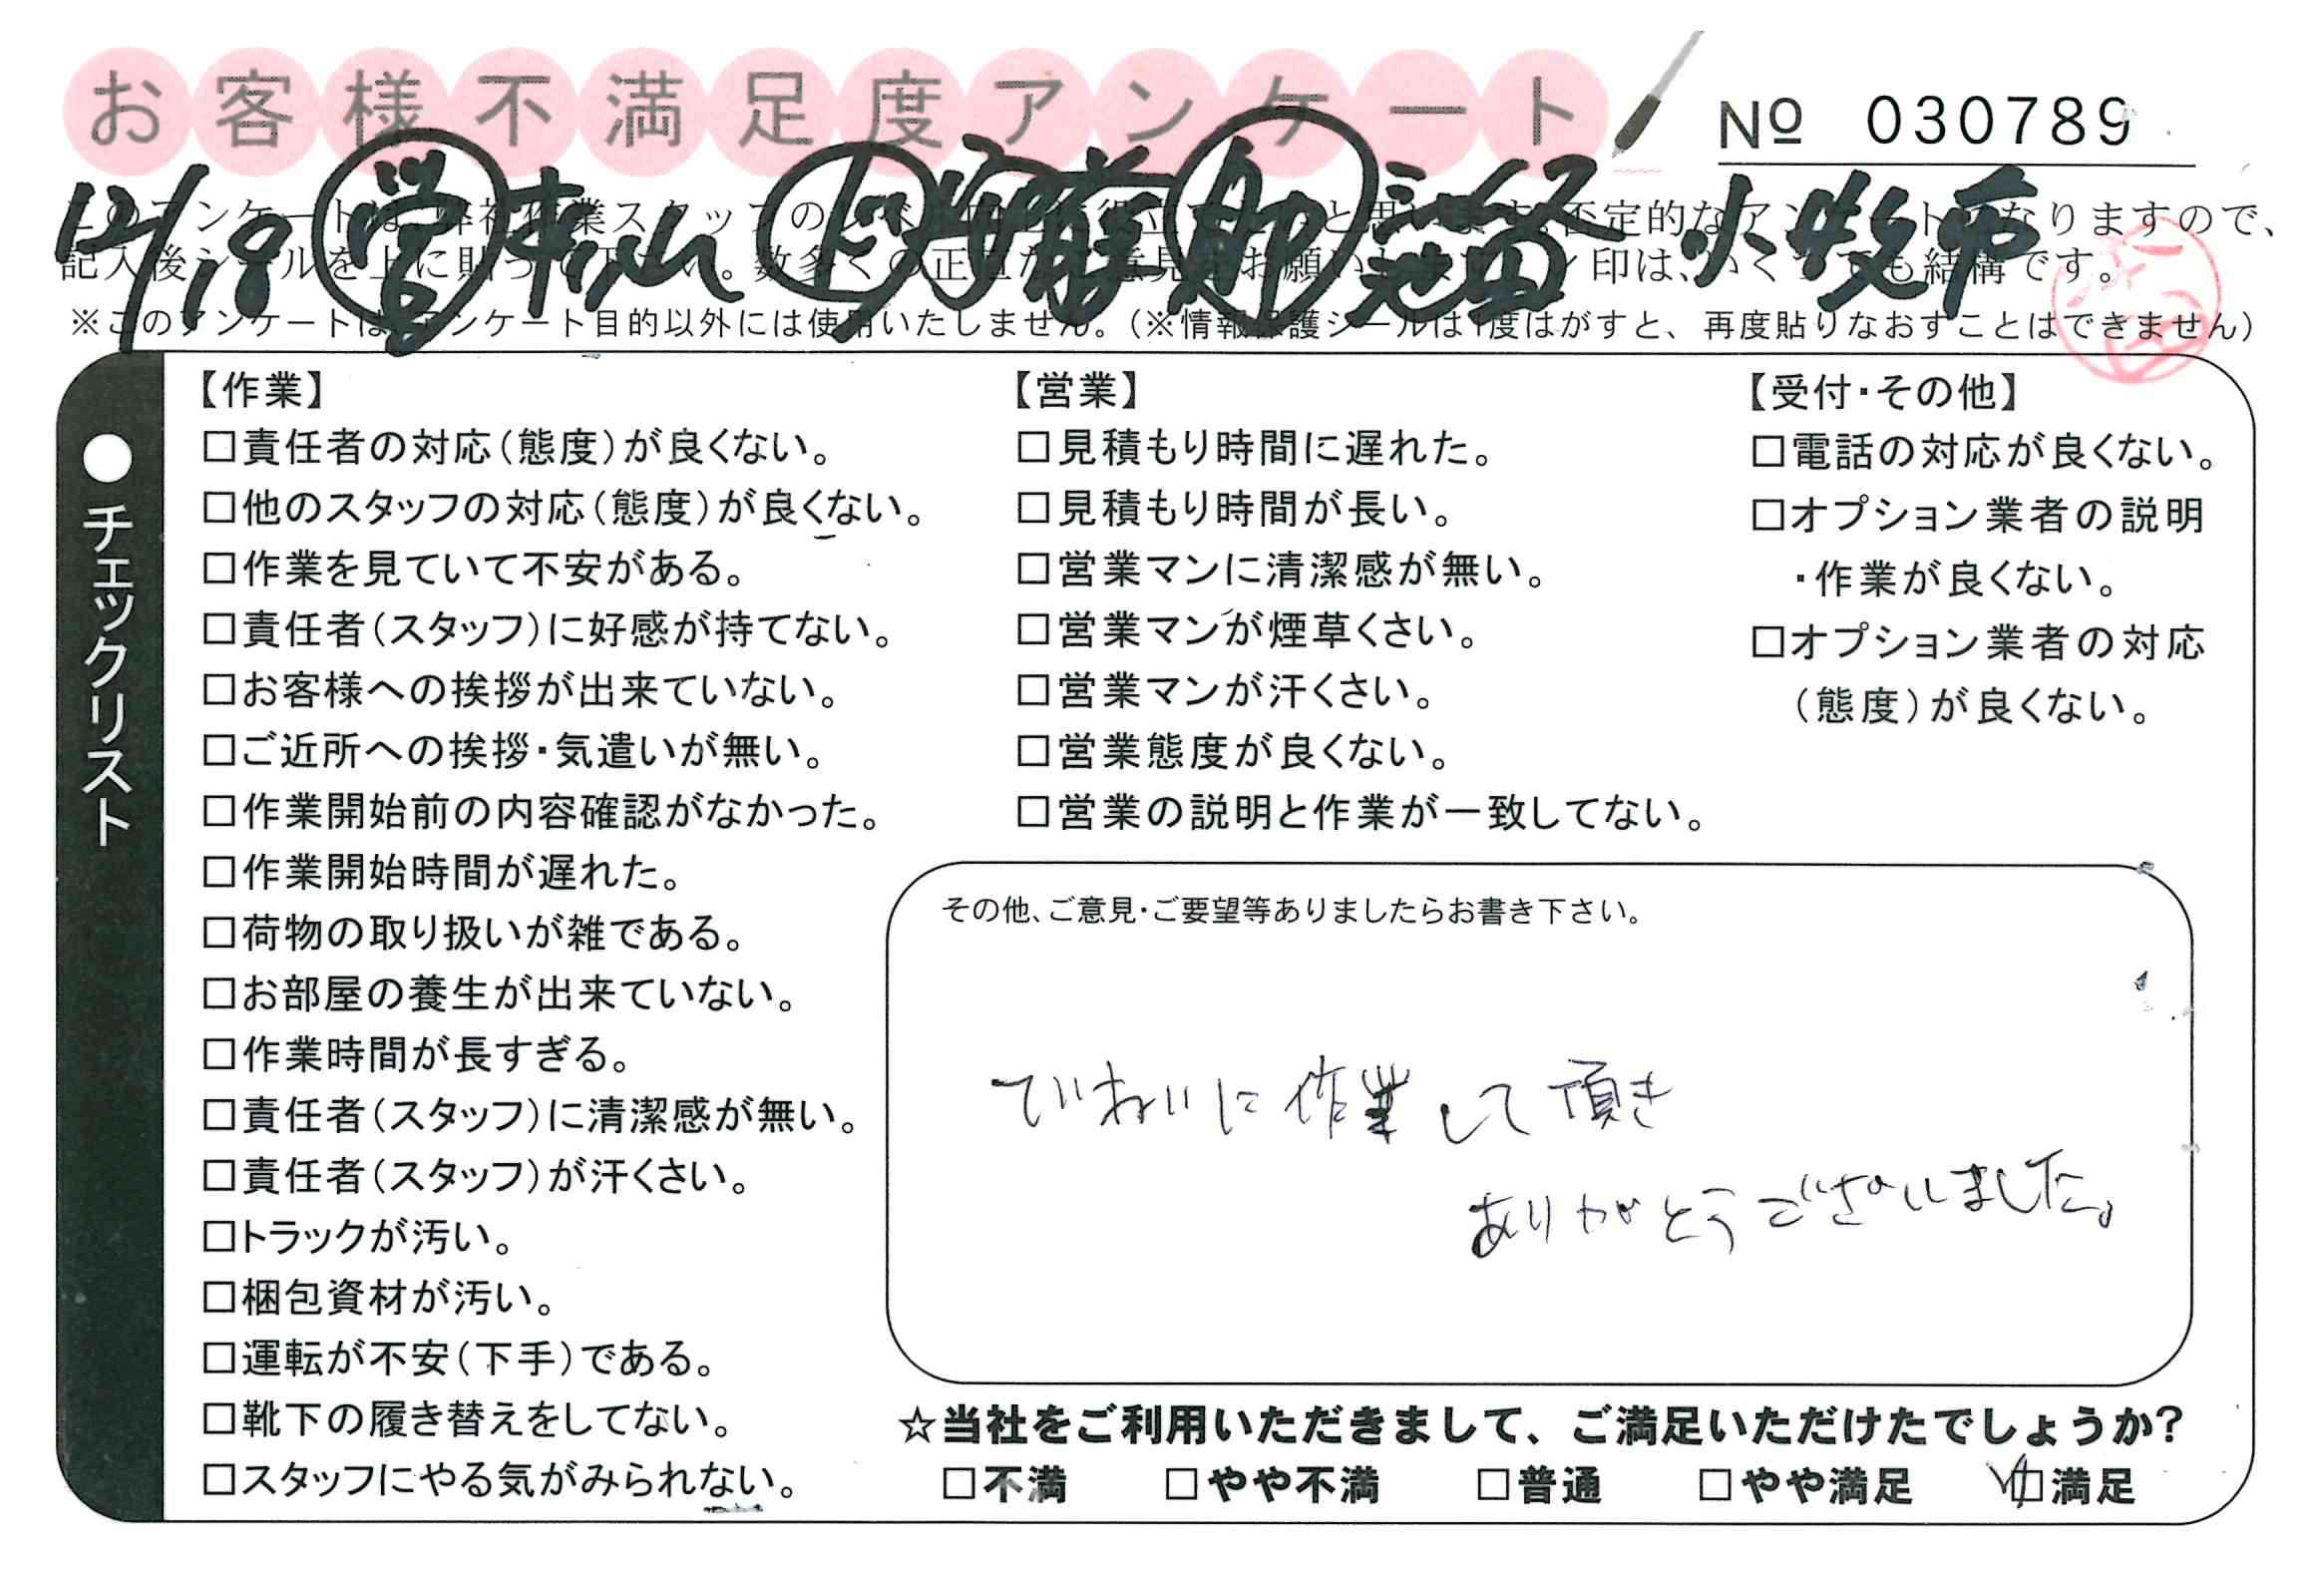 お客様不満足度アンケート
No 030789
12/18 営 ド 助 池田 小牧戸
記入後シールを上に貼って下さい。数多くの正直なご意見をお願い 印は、いくつでも結構です。
※このアンケートは、アンケート目的以外には使用いたしません。(※情報保護シールは1度はがすと、再度貼りなおすことはできません)
●チェックリスト
【作業】
□責任者の対応(態度)が良くない。
□他のスタッフの対応(態度)が良くない。
□作業を見ていて不安がある。
□責任者(スタッフ)に好感が持てない。
□お客様への挨拶が出来ていない。
□ご近所への挨拶・気遣いが無い。
□作業開始前の内容確認がなかった。
□作業開始時間が遅れた。
□荷物の取り扱いが雑である。
□お部屋の養生が出来ていない。
□作業時間が長すぎる。
□責任者(スタッフ)に清潔感が無い。
□責任者(スタッフ)が汗くさい。
□トラックが汚い。
□梱包資材が汚い。
□運転が不安(下手)である。
□靴下の履き替えをしてない。
□スタッフにやる気がみられない。
【営業】
□見積もり時間に遅れた。
□見積もり時間が長い。
□営業マンに清潔感が無い。
□営業マンが煙草くさい。
□営業マンが汗くさい。
□営業態度が良くない。
□営業の説明と作業が一致してない。
【受付・その他】
□電話の対応が良くない。
□オプション業者の説明
・作業が良くない。
□オプション業者の対応
(態度)が良くない。
その他、ご意見・ご要望等ありましたらお書き下さい。
ていねいに作業して頂き
ありがとうございました。
☆当社をご利用いただきまして、ご満足いただけたでしょうか?
□不満 □やや不満 □普通 □やや満足 ☑満足